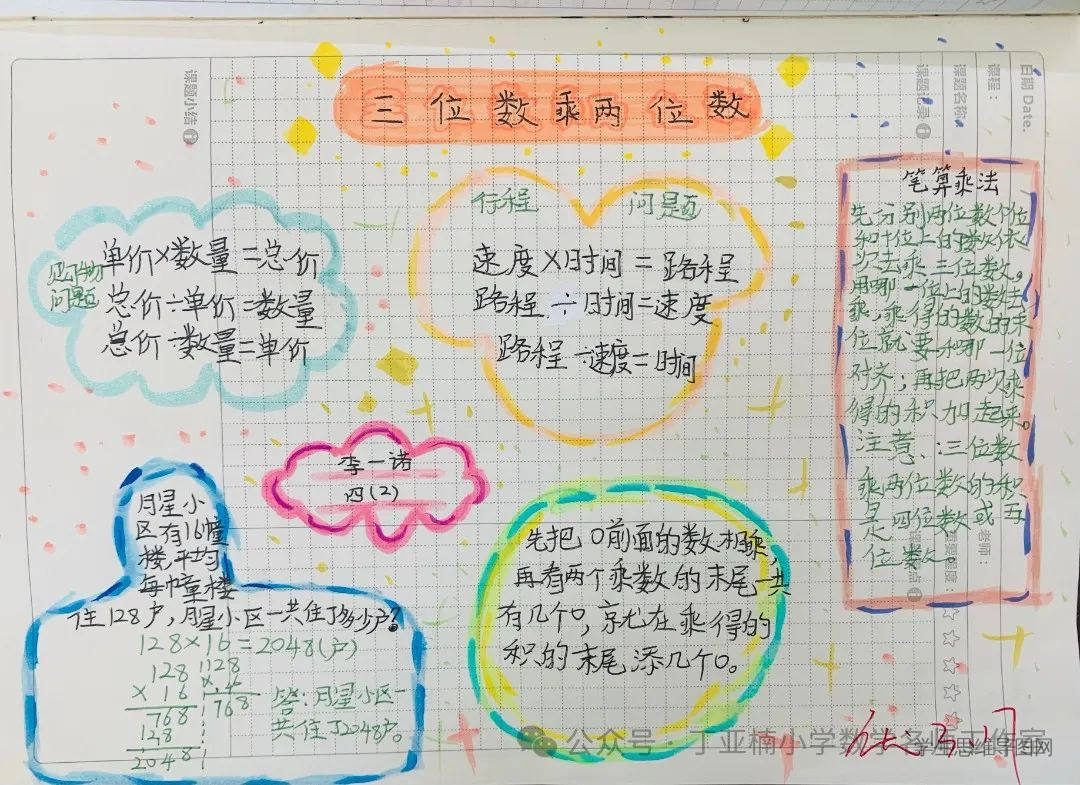 三位数乘两位数
课题小结
日期 Date.
课程：
课题名称
课题记录
行程 问题
速度×时间=路程
路程÷时间=速度
路程÷速度=时间
购物
问题
单价×数量=总价
总价÷单价=数量
总价÷数量=单价
笔算乘法
先分别两位数个位
和十位上的数依
次去乘三位数。
用哪一位上的数去
乘，乘得的数的末
位就要和哪一位
对齐；再把两次乘
得的积加起来。
注意：三位数
乘两位数的积
是四位数或五
位数。
老师：
李一诺
四(2)
月星小
区有16幢
楼,平均
每幢楼
住128户,月星小区一共住了多少户?
128×16=2048(户)
128
× 16
768
128
2048
128
× 6
768
答:月星小区一
共住了2048户。
先把0前面的数相乘,
再看两个乘数的末尾一共
有几个0,就在乘得的
积的末尾添几个0。
公众号·丁亚楠小学数学名师工作室
学生思维导图网